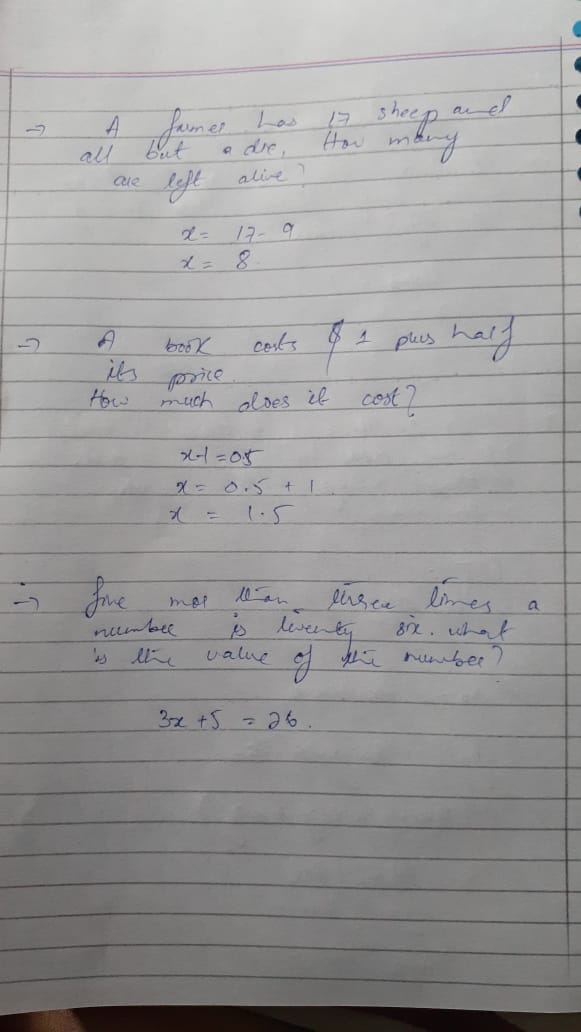 → A farmer has 17 sheep and
all but 9 die. How many
are left alive?
x = 17 - 9
x = 8
→ A book costs $ 1 plus half
its price.
How much does it cost?
x-1 = 0.5
x = 0.5 + 1
x = 1.5
→ five more than three times a
number is twenty six. what
is the value of the number?
3x + 5 = 26.